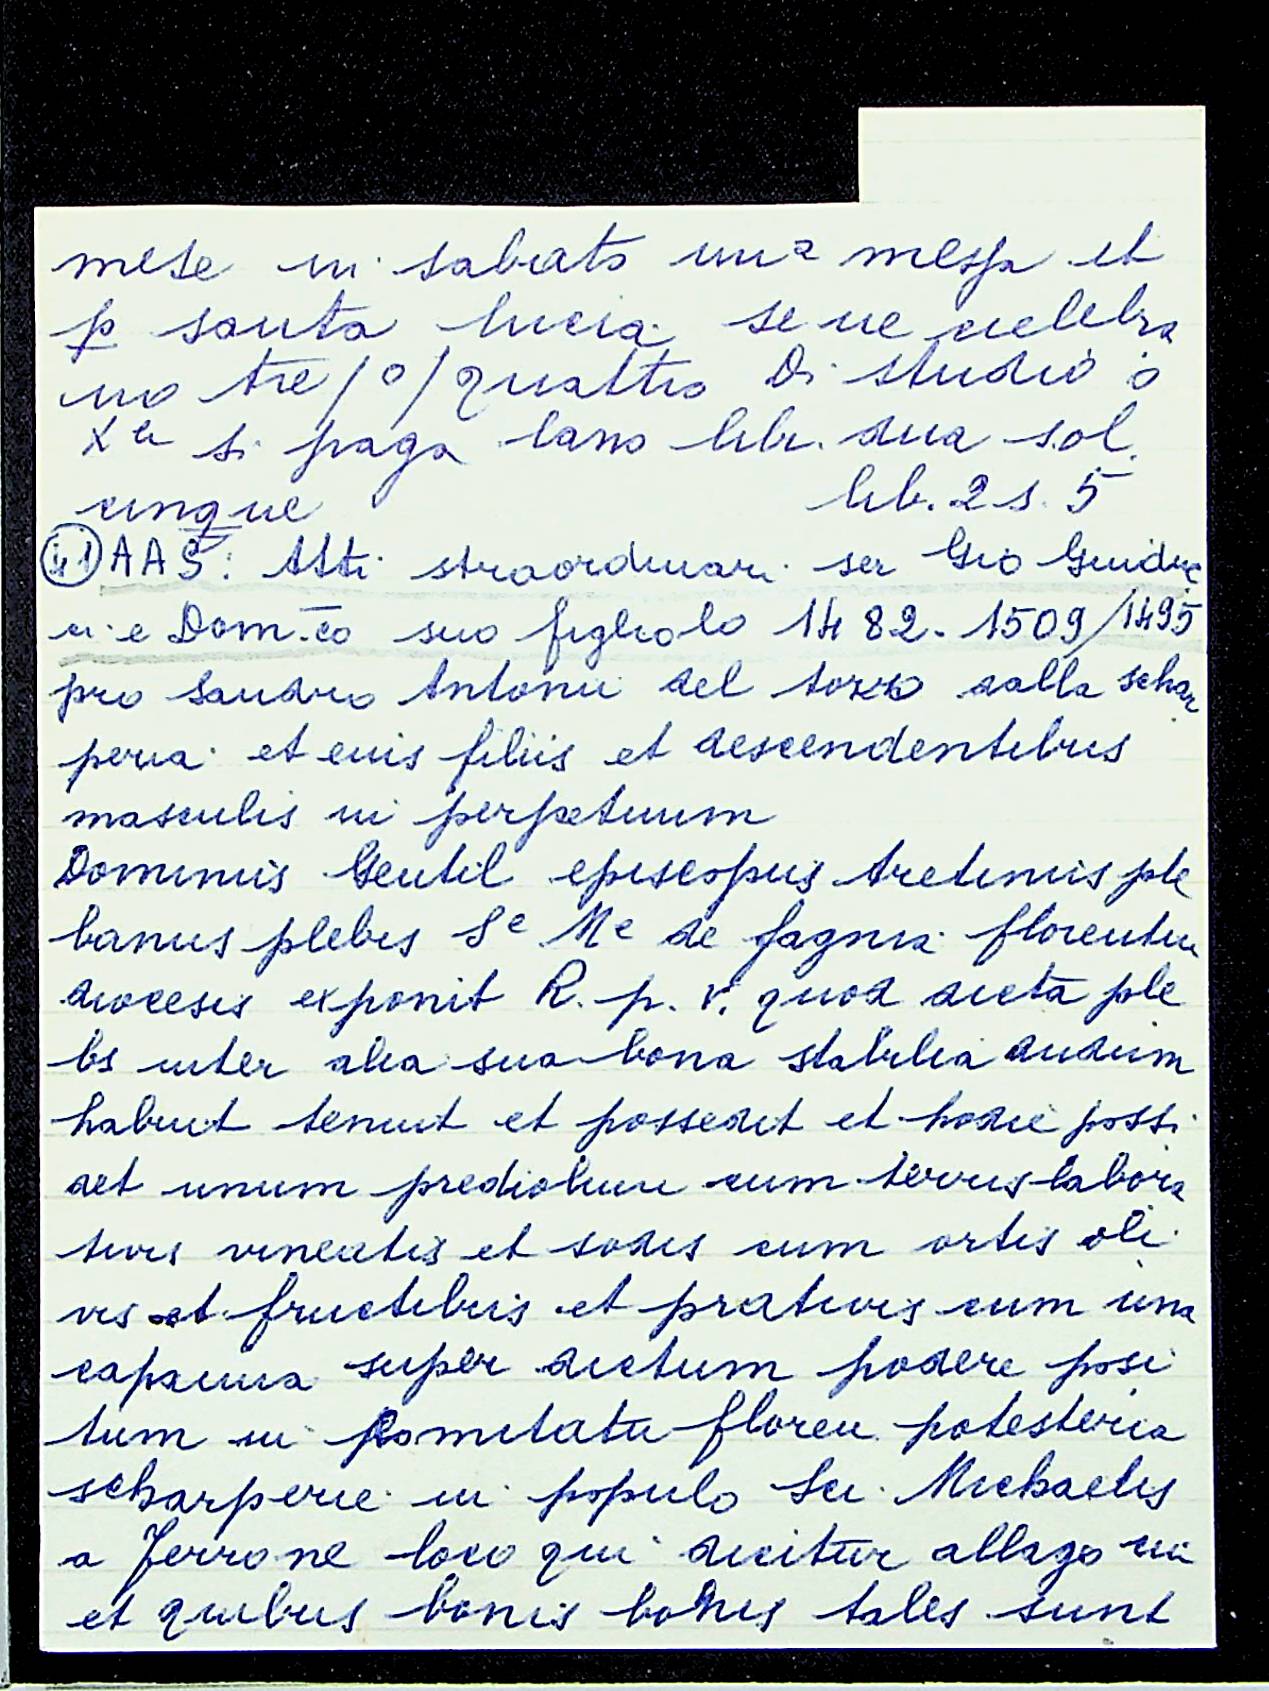 mese in sabato una messa et
p santa lucia se ne celebra
no tre /o/ quattro Di studio o
Xa si paga lano lib. dua sol.
cinque lib. 2 s. 5
41 AAS: Atti straordinari ser Gio Guidu
ci e Dom.co suo figliolo 1482-1509/1495
pro Sandro Antonii del tozzo dalla schar
peria et euis filiis et descendentibus
masculis in perpetuum
Dominus Gentil episcopus Aretinus ple
banus plebis Se Me de fagnia florentin
diocesis exponit R. p. v. quod dicta ple
bs inter alia sua bona stabilia dudum
habuit tenuit et possedit et hodie possi
det unum prediolum cum terris labora
tivis vineatis et sodis cum ortis oli
vis et fructibus et prativis cum una
capanna super dictum podere posi
tum in Comitatu floren potesteria
scharperie in populo Sci Michaelis
a Ferrone loco qui dicitur allago cui
et quibus bonis bonis tales sunt